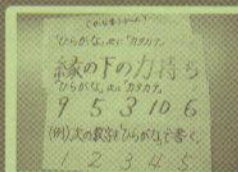 "ひらがな、次に"カタカナ。
縁の下の力持ち
"ひらがな、次に"カタカナ。
9 5 3 10 6
(例)次の数字を"ひらがな"で書く。
1 2 3 4 5